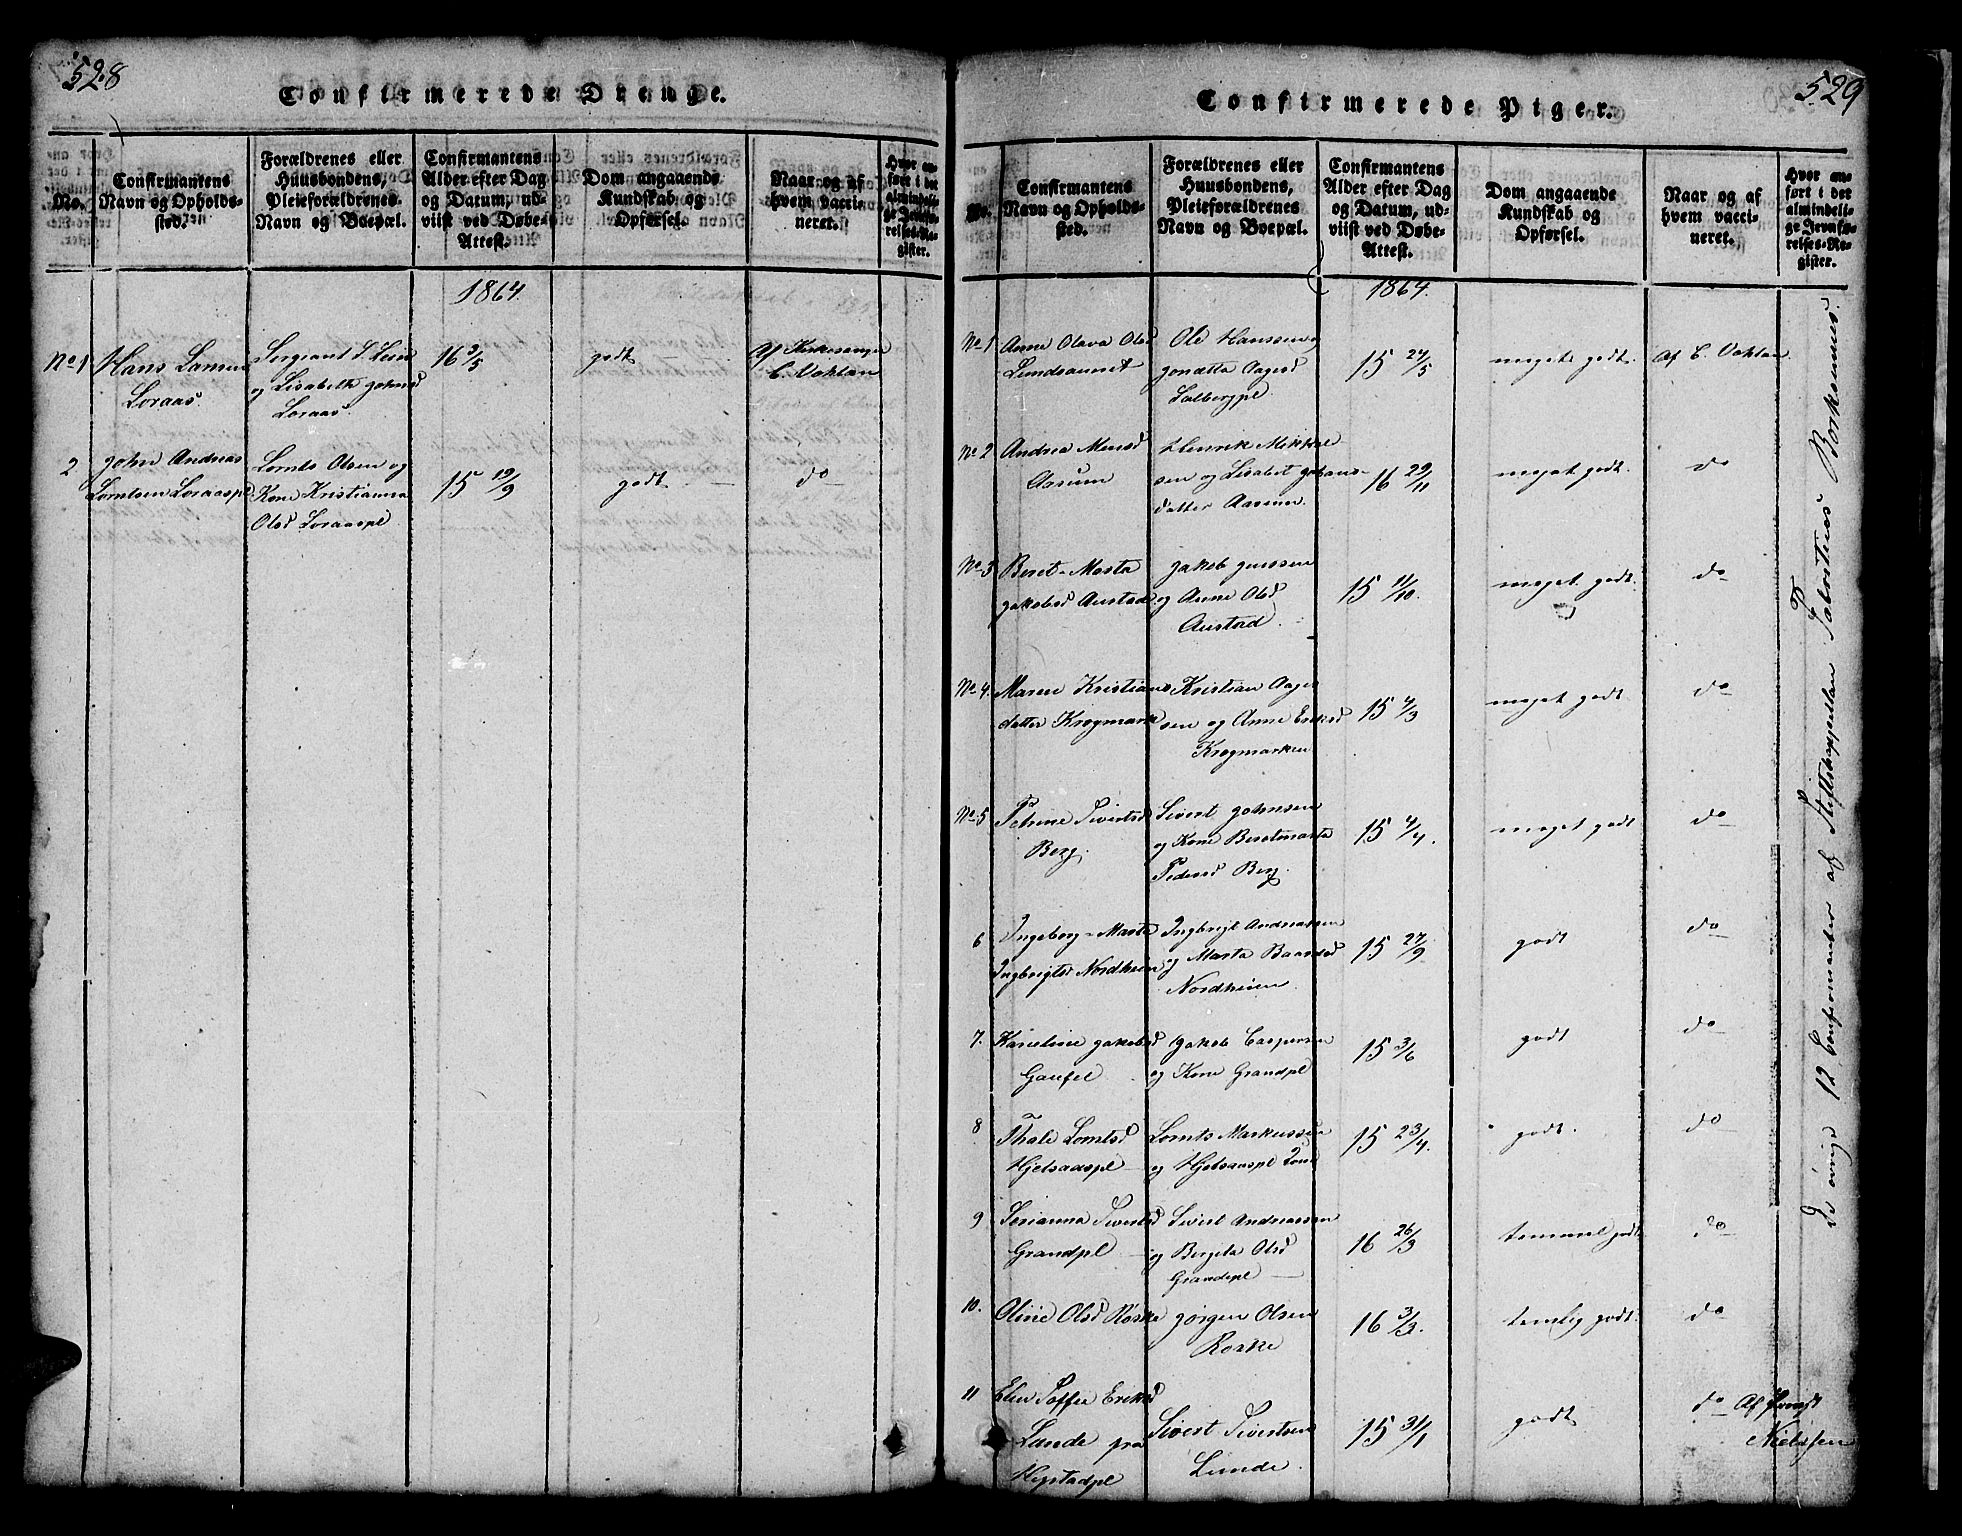 528
Confirmerede Drenge.
No.
Confirmantens Navn og Opholdssted.
Forældrenes eller Huusbondens, Pleieforældrenes Navn og Boepæl.
Confirmantens Alder efter Dag og Datum, udviist ved Døbe-Attest.
Dom angaaende Kundskab og Opførsel.
Naar og af hvem vaccineret.
Hvor anført i det almindelige Jevnførelses-Register.
1864.
No 1
Hans Larsen
Loraas.
Sergiant L. Leir
og Lisabeth Johnsd
Loraas.
16 3/5
godt
Af Kirkesanger
C. Voktan
2
John Andreas
Lorntsen Loraaspl
Lornts Olsen og
Kone Kristianna
Olsd Loraaspl
15 19/9
godt
do
529
Confirmerede Piger.
No.
Confirmantens Navn og Opholdssted.
Forældrenes eller Huusbondens, Pleieforældrenes Navn og Boepæl.
Confirmantens Alder efter Dag og Datum, udviist ved Døbe-Attest.
Dom angaaende Kundskab og Opførsel.
Naar og af hvem vaccineret.
Hvor anført i det almindelige Jevnførelses-Register.
1864.
No 1
Anne Olava Olsd
Lundsaunet
Ole Hanssen og
Jonetta Aagesd
Salbergpl.
15 27/5
meget godt.
Af C. Voktan.
No 2
Aasum
Henrik Mikkel-
sen og Lisabet Johans-
datter Aasum.
16 29/11
meget godt.
do
No 3
Beret-Marta
Jakobsd Austad
Jakob Jenssen
og Anne Olsd
Austad.
15 11/10.
meget godt.
do
No 4.
Maren Kristians
datter Krogmark
Kristian Aage
sen og Anne Eriksd
Krogmarken
15 4/3
meget godt.
do
No 5
Petrine Sivertsd
Berg.
Sivert Johnsen
og Kone Beretmarta
Pedersd Berg.
15 4/4.
meget godt
do
6
Ingeborg-Marta
Ingbrigtsd Nordheim
Ingbrigt Andreassen
og Marta Baardsd
Nordheim.
15 27/9
godt
do
7.
Karieline Jakobsd
Gaufel
Jakob Caspersen
og Kone Grandpl
15 3/6
godt
do
8
Thale Lorntsd
Hjelsaaspl
Lornts Markussen
og Hjelsaaspl
15 23/4.
godt.
do
9
Serianna Sivertsd
Grandpl
Sivert Andreassen
og Bergita Olsd
Grandepl
16 26/3
temmel godt
do
10.
Oline Olsd Røske
Jørgen Olsen
Roske
16 3/3.
temlig godt.
do
11
Elen Toffea Eriksd
Lunde fra
Hegstadpl
Sivert Sivertsen
Lunde.
15 31/1
godt
do Af
Nielssen
De øvrige 12 Confirmanter af Stiftskappelan Tabortius Borkenius.